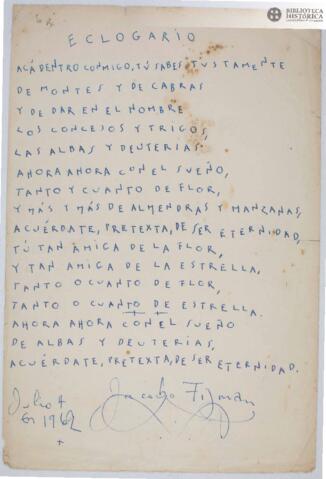 BIBLIOTECA
HISTÓRICA
ECLOGARIO
ACÁ DENTRO CONMIGO, TÚ SABES JUSTAMENTE
DE MONTES Y DE CABRAS
Y DE DAR EN EL NOMBRE
LOS CONCEJOS Y TRIGOS,
LAS ALBAS Y DEUTERIAS.
AHORA AHORA CON EL SUEÑO,
TANTO Y CUANTO DE FLOR,
Y MÁS Y MÁS DE ALMENDRAS Y MANZANAS,
ACUÉRDATE, PRETEXTA, DE SER ETERNIDAD,
TÚ TAN AMIGA DE LA FLOR,
Y TAN AMIGA DE LA ESTRELLA,
TANTO O CUANTO DE FLOR,
TANTO O CUANTO DE ESTRELLA.
AHORA AHORA CON EL SUEÑO
DE ALBAS Y DEUTERIAS,
ACUÉRDATE, PRETEXTA, DE SER ETERNIDAD.
Jacobo Fijman
Julio 4
1962